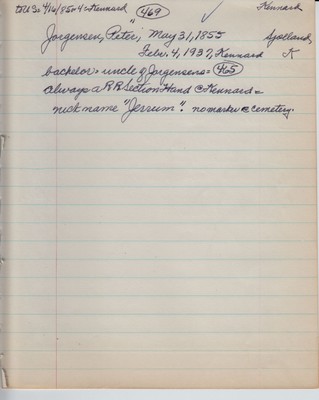 469 Kennard
Jorgensen, Peter, May 31, 1855
Febr. 4, 1937, Kennard K
bachelor - uncle of Jorgensens = 465
always a RR Section Hand @ Kennard -
nick name "Jerrum". no marker @ cemetery.